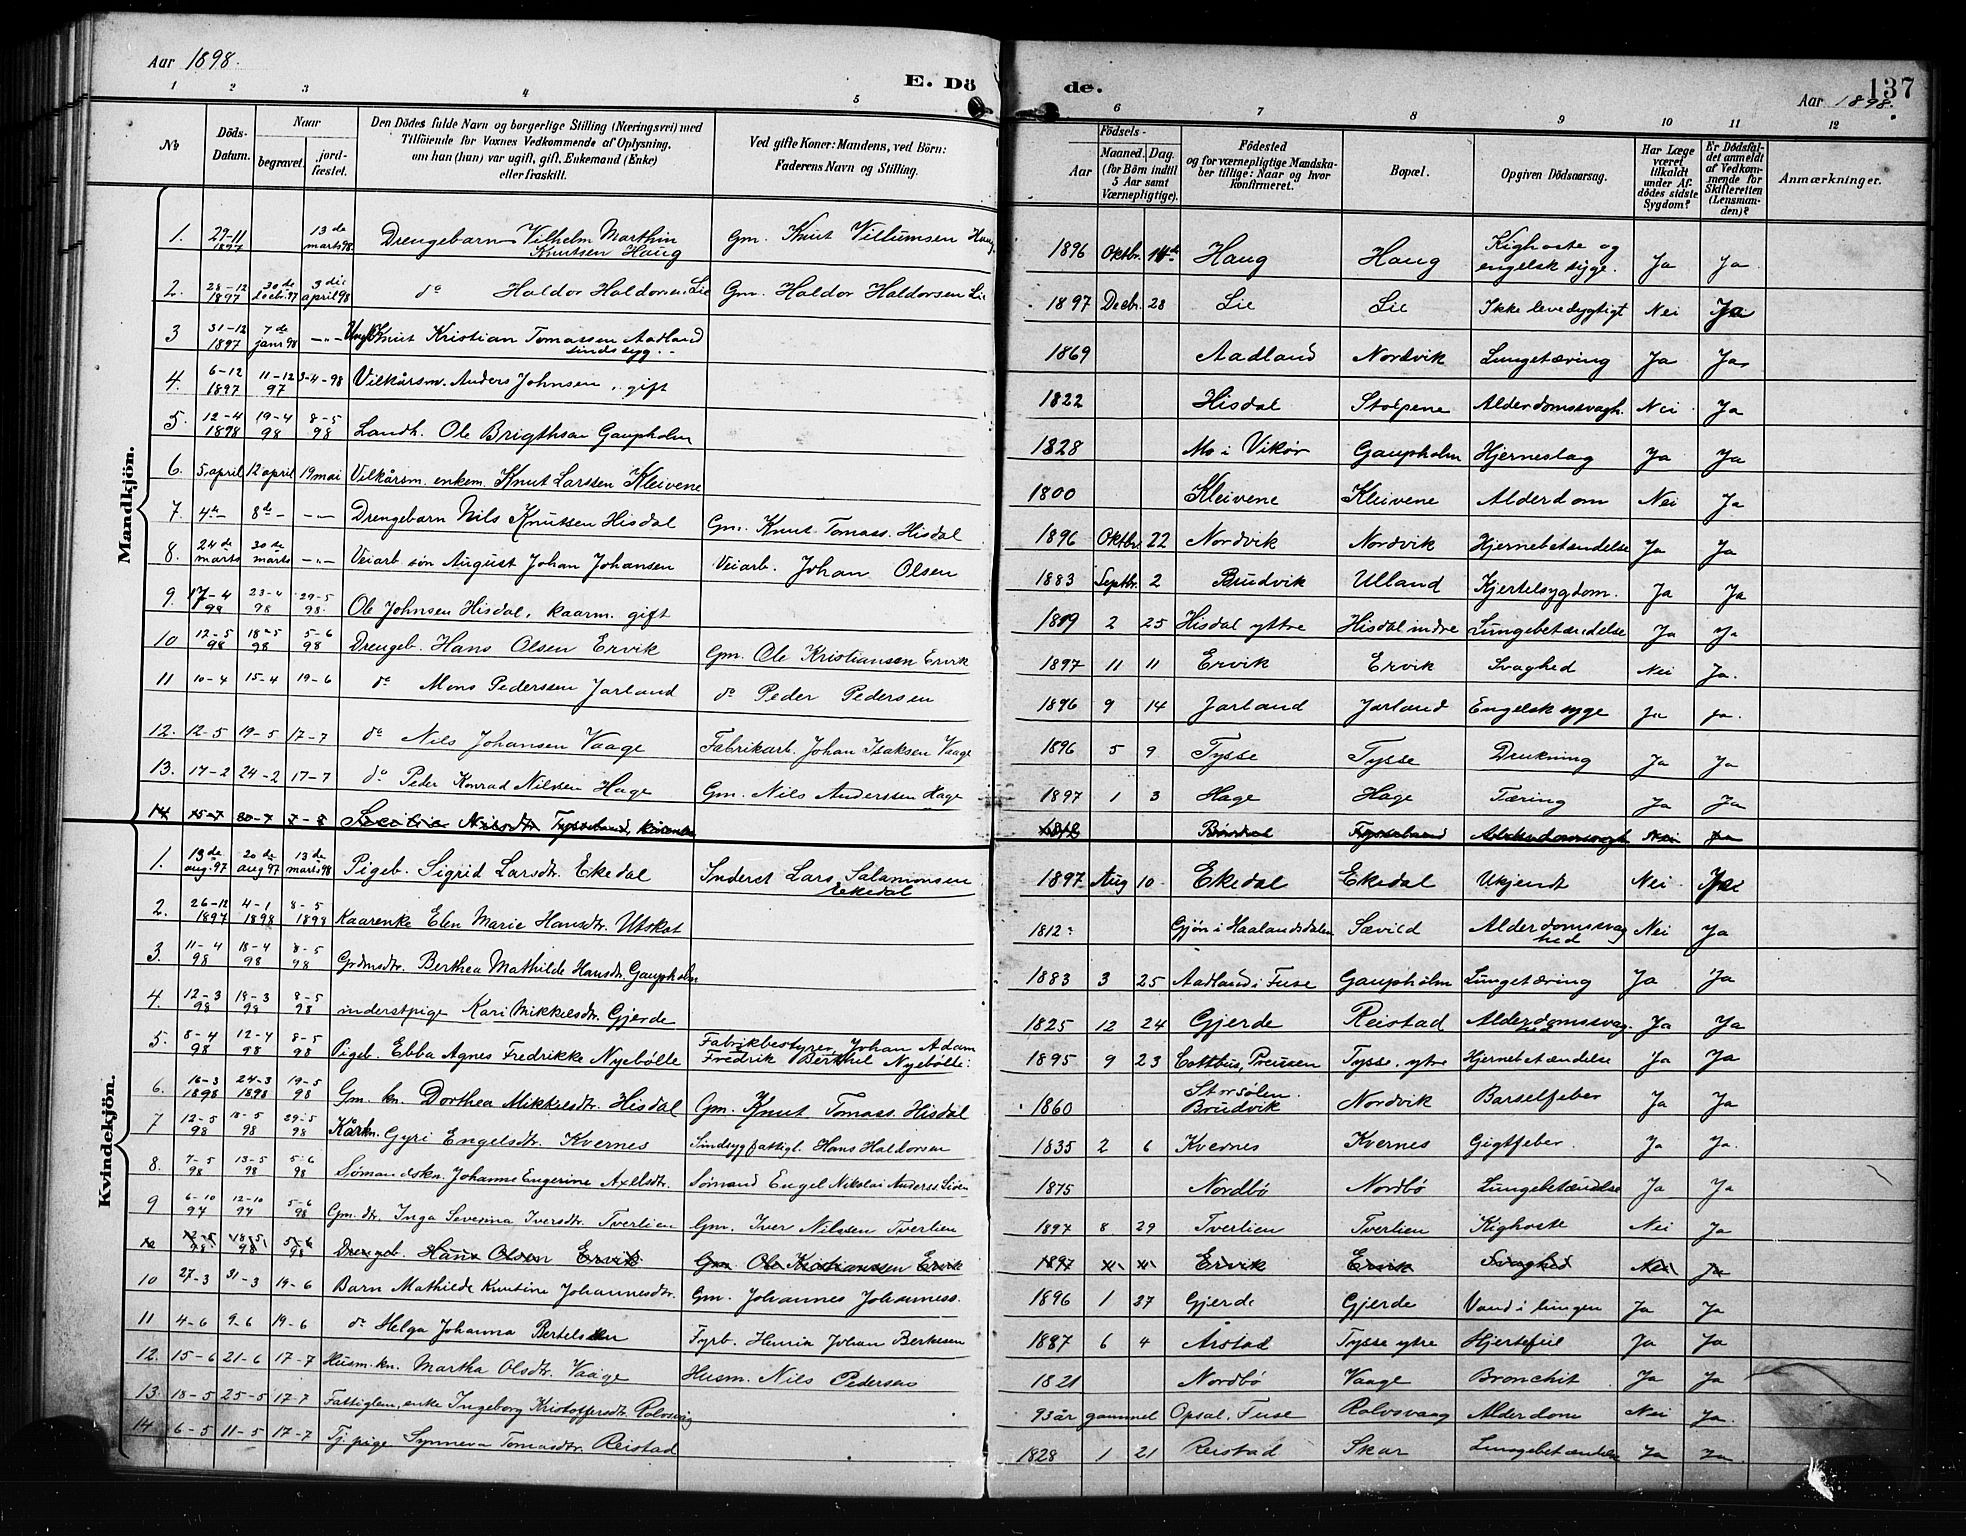 Aar 1898.
E. Dö
de.
137
Aar 1898.
1 2 3 4 5 6 7 8 9 10 11 12
No
Döds-Datum.
Naar
begravet.
jord-fæstet.
Den Dödes fulde Navn og borgerlige Stilling (Næringsvei) med
Tilföiende for Voxnes Vedkommende af Oplysning,
om han (hun) var ugift, gift, Enkemand (Enke)
eller fraskilt.
Ved gifte Koner: Mandens, ved Börn:
Faderens Navn og Stilling.
Födsels-
Aar
Maaned. Dag.
(for Börn indtil
5 Aar samt
Værnepligtige).
Födested
og for værnepligtige Mandska-
ber tillige: Naar og hvor
konfirmeret.
Bopæl.
Opgiven Dödsaarsag.
Har Læge
været
tilkaldt
under Af-
dödes sidste
Sygdom?
Er Dödsfal-
det anmeldt
af Vedkom-
mende for
Skifteretten
(Lensman-
den)?
Anmærkninger.
Mandkjön.
1. 29-11 1897 13de marts 98 Drengebarn Vilhelm Marthin Knutsen Haug Gm. Knut Villumsen Haug 1896 Oktbr. 14de Haug Haug Kighoste og engelsk syge. Ja Ja
2. 28-12 1897 30de Decbr. 97 3die april 98 do Haldor Haldorsen Lie Gm. Haldor Haldorsen Lie 1897 Decbr. 28 Lie Lie Ikke levedygtigt Nei Ja
3 31-12 1897 7de janr 98 -"- Ungk. Knut Kristian Tomassen Aadland sindssyg. 1869 Aadland Nordvik Lungetæring Ja Ja
4. 6-12 1897 11-12 97 3-4-98 Vilkårsm. Anders Johnsen, gift 1822 Hisdal Stolpene Alderdomssvagh. Nei Ja
5. 12-4 1898 19-4 98 8-5 98 Landh. Ole Brigthsen Gaupholm 1828 Mo i Vikør Gaupholm Hjerneslag Ja Ja
6. 5 april 12 april 19 mai Vilkårsm. enkem. Knut Larssen Kleivene 1800 Kleivene Kleivene Alderdom Nei Ja
7. 4de - 8de - -"- Drengebarn Nils Knutsen Hisdal Gm. Knut Tomass. Hisdal 1896 Oktbr 22 Nordvik Nordvik Hjernebetændelse Ja Ja
8. 24de marts 30de marts -"- Veiarb. søn August Johan Johansen Veiarb. Johan Olsen 1883 Septbr. 2 Brudvik Ulland Kjertelsygdom. Ja Ja
9. 17-4 98 23-4 98 29-5 98. Ole Johnsen Hisdal, kaarm. gift 1809 2 25 Hisdal yttre Hisdal indre Lungebetændelse Ja Ja
10 12-5 98 18-5 98 5-6 98 Drengeb. Hans Olsen Ervik Gm. Ole Kristiansen Ervik 1897 11 11 Ervik Ervik Svaghed Nei Ja.
11 10-4 15-4 19-6 do Mons Pederssen Jarland do Peder Pedersen 1896 9 14 Jarland Jarland Engelsk syge Ja Ja.
12. 12-5 19-5 17-7 do Nils Johansen Vaage Fabrikarb. Johan Isaksen Vaage 1896 5 9 Tysse Tysse Drukning Ja Ja
13. 17-2 24-2 17-7 do Peder Konrad Nilssen Hage Gm. Nils Anderssen Hage 1897 1 3 Hage Hage Tæring Ja Ja
14 15-7 30-7 7-8 Nilsdt. Tysseland Tysseland Alderdomssvagh Nei Ja
Kvindekjön.
1. 13de aug. 97 20de aug 97 13de marts 98 Pigeb. Sigrid Larsdt. Ekedal Inderst Lars Salamonsen Eikedal 1897 Aug 10 Ekedal Ekedal Ukjendt Nei
2. 26-12 1897 4-1 1898 8-5 1898 Kaarenke Elen Marie Hansdtr. Utskot 1812 Gjøn i Haalandsdalen Sævild Alderdomssvaghed Nei Ja
3. 11-4 98 18-4 98 8-5 98 Grdmsdtr. Berthea Mathilde Hansdtr. Gaupholm 1883 3 25 Aadland i Fuse Gaupholm Lungetæring Ja Ja
4. 12-3 98 19-3 98 8-5 98 inderstpige Kari Mikkelsdtr. Gjerde 1825 12 24 Gjerde Reistad Alderdomssvag. Ja Ja
5. 8-4 98 12-4 98 8-5 98 Pigeb. Ebba Agnes Fredrikke Nyebølle Fabrikbestyrer Johan Adam Fredrik Berthel Nyebølle. 1895 9 23 Cottbus, Preussen Tysse, ytre Hjernebetændelse Ja Ja
6. 16-3 1898 24-3 1898 19-5 98 Gm. kn. Dorthea Mikkelsdtr. Hisdal Gm. Knut Tomass. Hisdal 1860 Storsølen. Brudvik Nordvik Barselfeber Ja Ja
7 12-5 98 18-5 98 29-5 98 Kårkn. Gyri Engelsdtr. Kvernes Sindssyg fattigl. Hans Haldorsen 1835 2 6 Kvernes Kvernes Gigtfeber Ja Ja.
8. 7-5 98 13-5 98 5-6 98 Sømandskn. Johanne Engerine Axelsdtr. Sømand Engel Nikolai Anderss. 1875 Nordbø Nordbø Lungebetændelse Ja Ja
9 6-10 97 12-10 97 5-6 98 Gm. dtr. Inga Severina Iversdtr. Tverlien Gm. Iver Nilssen Tverlien 1897 8 29 Tverlien Tverlien Kighoste Nei Ja
10 12-5 98 18-5 98 5-6 98 Drengeb. Hans Olsen Ervik Gm Ole Kristianssen Ervik 1897 11 11 Ervik Ervik Svaghed Nei Ja
10 27-3 31-3 19-6 Barn Mathilde Knutine Johannesdtr. Gm. Johannes Johanness. 1896 1 27 Gjerde Gjerde Vand i lungen Ja Ja
11 4-6 9-6 19-6 do Helga Johanna Bertelsen Fyrb. Henrik Johan Bertelsen 1887 6 4 Årstad Tysse ytre Hjertefeil Ja Ja
12. 15-6 21-6 17-7 Husm. kn. Martha Olsdtr. Vaage Husm. Nils Pedersen 1821 Nordbø Vaage Bronchit Ja Ja
13. 18-5 25-5 17-7 Fattiglem, enke Ingeborg Kristoffersdtr. Rolvsvåg 93 år gammel Opsal, Fuse Rolvsvaag Alderdom Nei Ja.
14. 6-5 11-5 17-7 Tj. pige Synneva Tomasdtr. Reistad 1828 1 21 Reistad Skar Lungebetændelse Ja Ja.